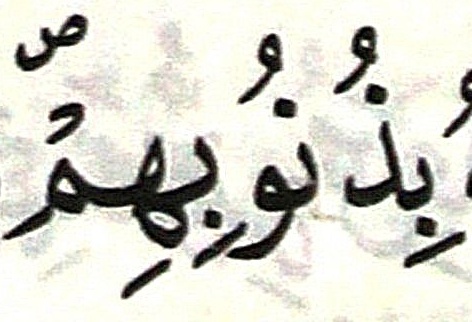 بِذُنُوبِهِمْ ص